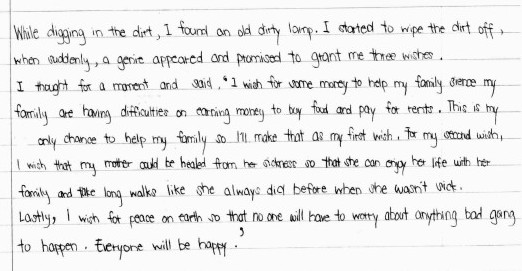 While digging in the dirt, I found an old dirty lamp. I started to wipe the dirt off,
when suddenly, a genie appeared and promised to grant me three wishes.
I thought for a moment and said, "I wish for some money to help my family sience my
family are having difficulties on earning money to buy food and pay for rents. This is my
only chance to help my family so I'll make that as my first wish. For my second wish,
I wish that my mother could be healed from her sickness so that she can enjoy her life with her
family and take long walks like she always did before when she wasn't sick.
Lastly, I wish for peace on earth so that no one will have to worry about anything bad going
to happen. Everyone will be happy."